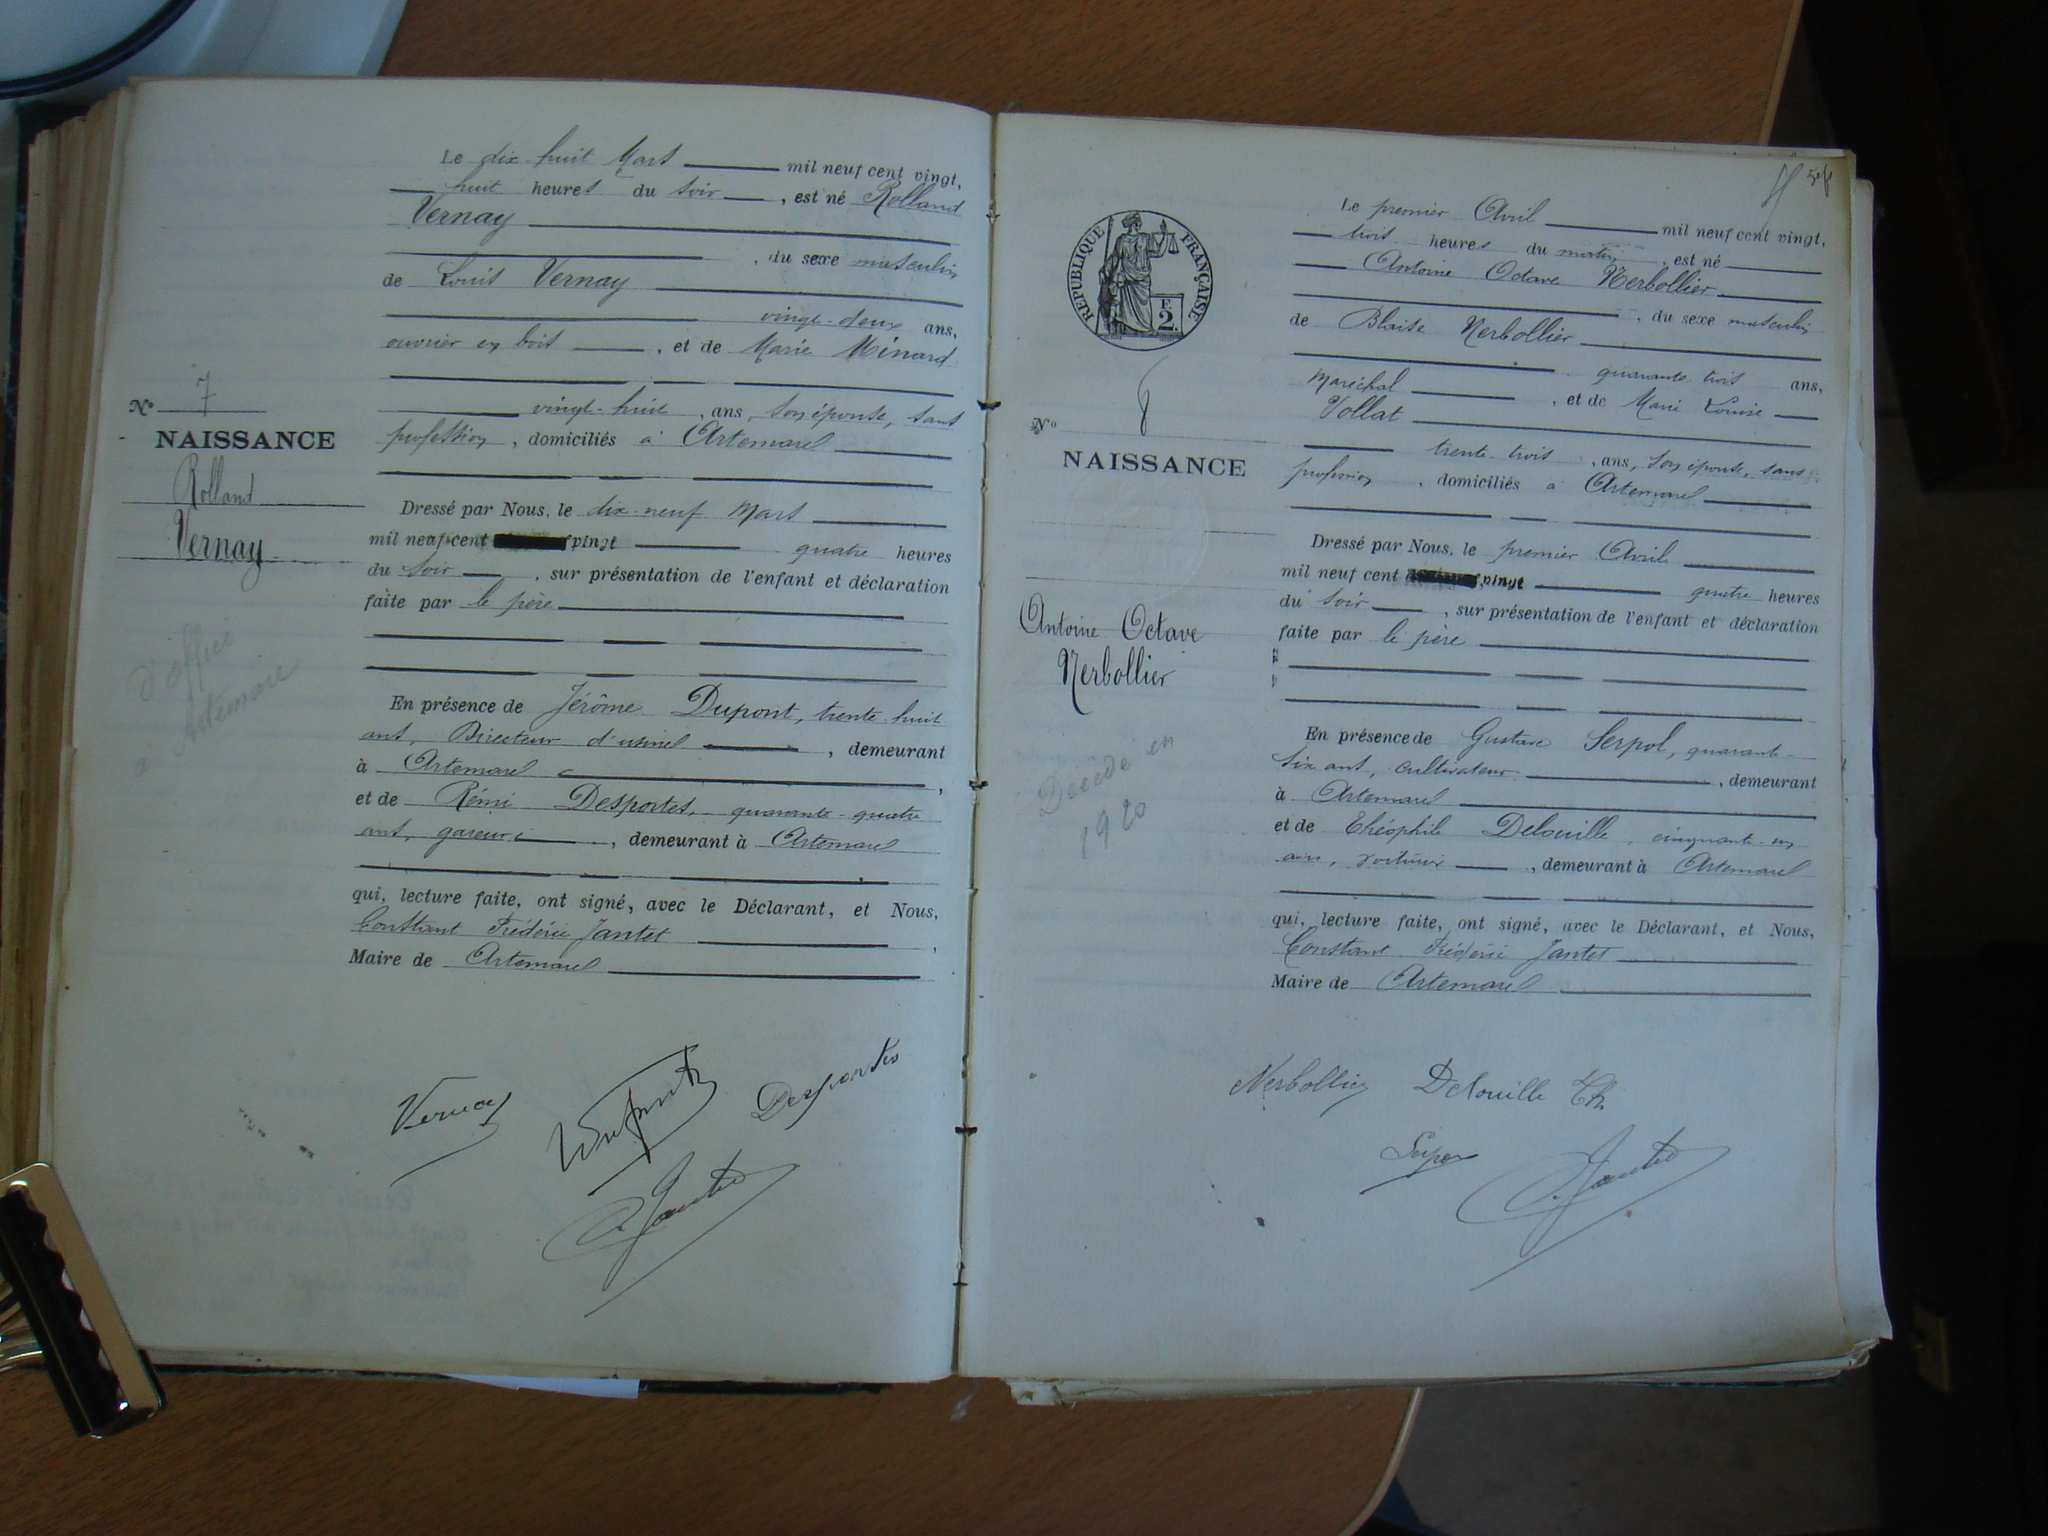 Le dix huit Mars mil neuf cent vingt,
huit heures du soir, est né Rolland
Vernay
, du sexe masculin
de Louis Vernay
vingt-deux ans,
ouvrier en bois, et de Marie Ménard
N° 7
vingt-huit, ans, son épouse, sans
NAISSANCE
profession, domiciliés à Artemare
Rolland
Vernay
Dressé par Nous, le dix-neuf Mars
mil neuf cent vingt quatre heures
du soir, sur présentation de l'enfant et déclaration
faite par le père
d'office
à Artemare
En présence de Jérôme Dupont, trente huit
ans, Directeur d'usine, demeurant
à Artemare,
et de Rémi Desportes, quarante-quatre
ans, demeurant à Artemare
qui, lecture faite, ont signé, avec le Déclarant, et Nous,
Constant Frédéric Jantet,
Maire de Artemare
Vernay
Desportes
Le premier Avril mil neuf cent vingt,
trois heures du matin, est né
Antoine Octave Nerbollier
RÉPUBLIQUE FRANÇAISE
F.
2.
, du sexe masculin
de Blaise Nerbollier
quarante trois ans,
Maréchal, et de Marie Louise
Vollat
N° 8
NAISSANCE
trente-trois, ans, son épouse, sans
profession, domiciliés à Artemare
Dressé par Nous, le premier Avril
mil neuf cent vingt quatre heures
du soir, sur présentation de l'enfant et déclaration
faite par le père
Antoine Octave
Nerbollier
Décédé en
1920
En présence de Gustave Serpol, quarante-
six ans, cultivateur, demeurant
à Artemare
et de Théophile Delouille, cinquante-un
ans, voiturier, demeurant à Artemare
qui, lecture faite, ont signé, avec le Déclarant, et Nous,
Constant Frédéric Jantet
Maire de Artemare
Nerbollier Delouille Th.